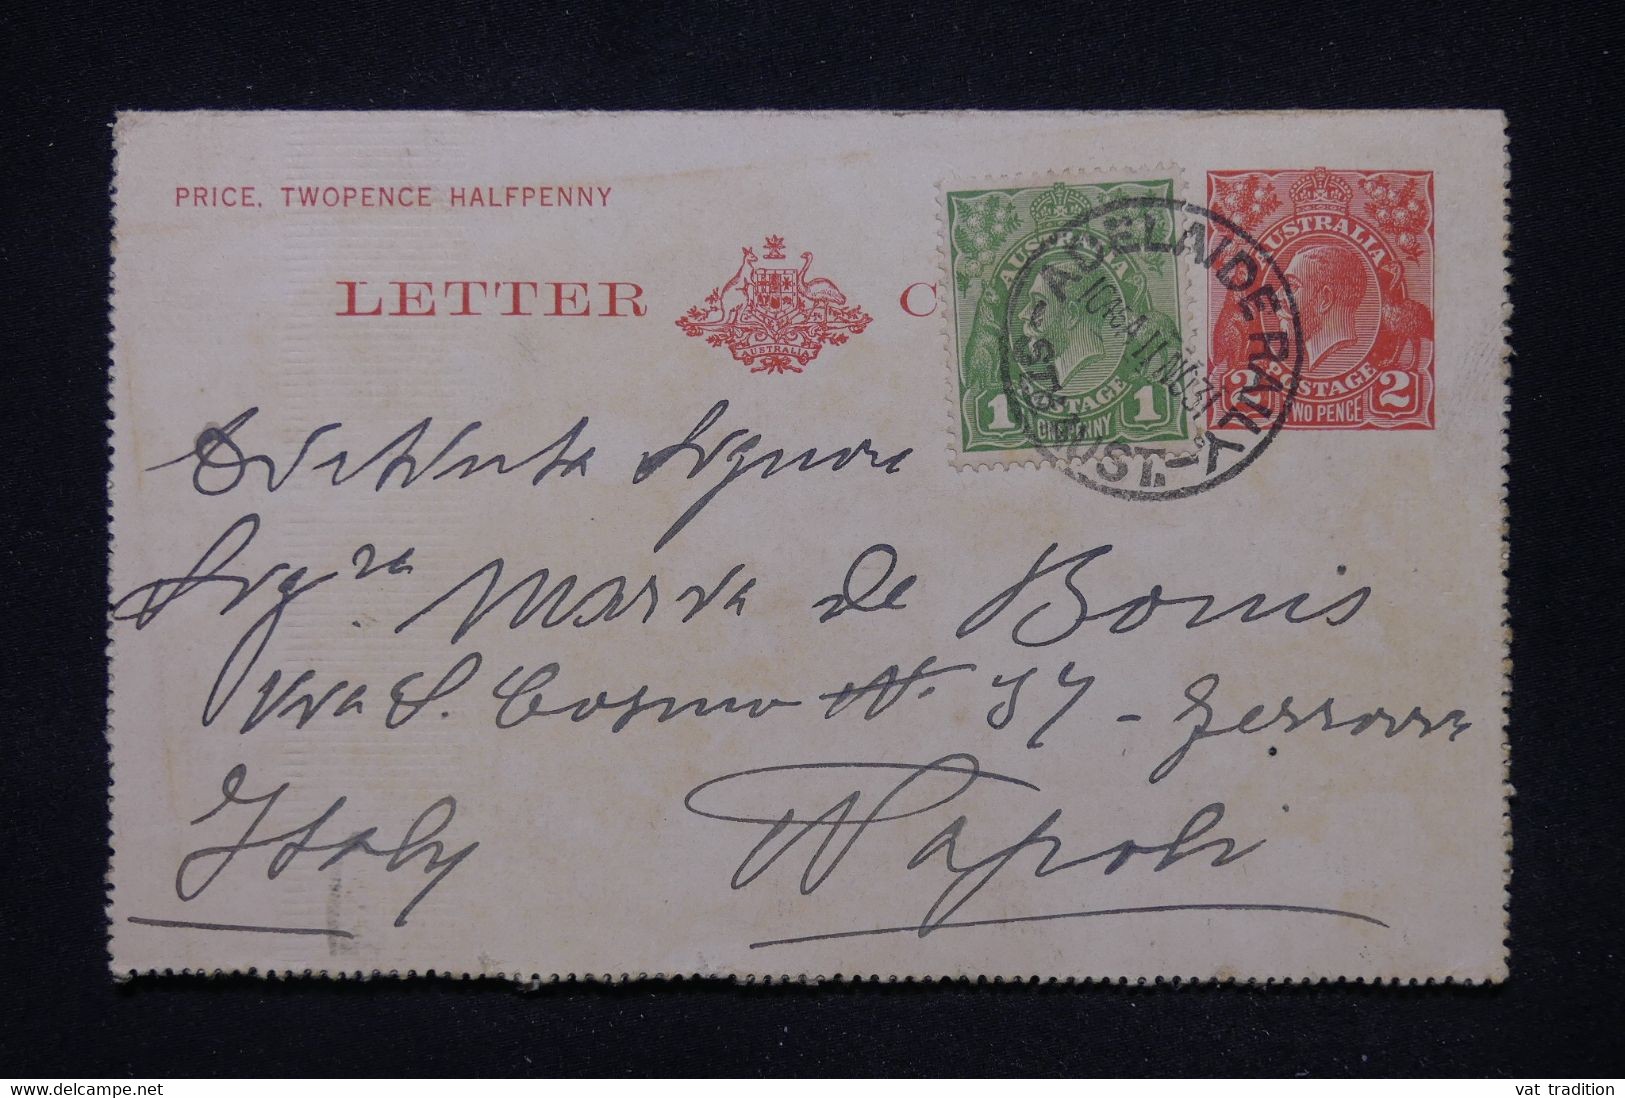 PRICE, TWOPENCE HALFPENNY
LETTER C
AUSTRALIA
AUSTRALIA
1 POSTAGE 1
ONE PENNY
AUSTRALIA
2 POSTAGE 2
TWO PENCE
ADELAIDE RAILY
STH AUST.
11 NO 31
Signora
Sigra Maria de Bonis
Via S. Cosmo N. 37 -
Italy Napoli
www.delcampe.net
vat tradition